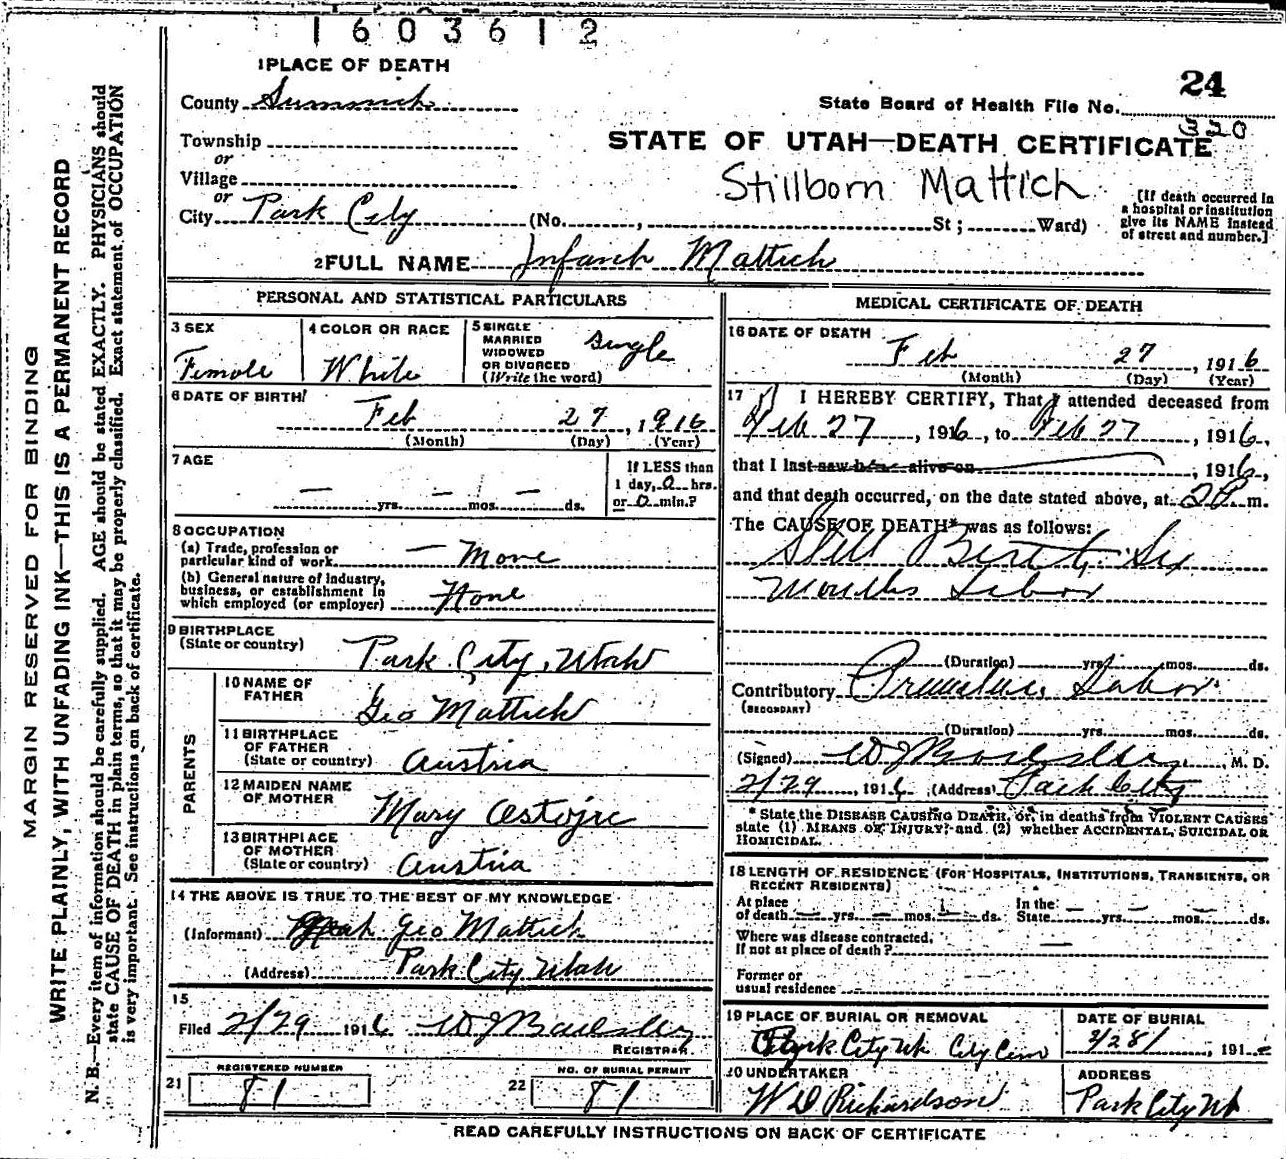 1603612
24
State Board of Health File No. 320
STATE OF UTAH—DEATH CERTIFICATE
Stillborn Mattich
1 PLACE OF DEATH
County Summit
Township
or
Village
or
City Park City (No. , St ; Ward)
[If death occurred in a hospital or institution give its NAME instead of street and number.]
2 FULL NAME Infant Mattich
PERSONAL AND STATISTICAL PARTICULARS
3 SEX
Female
4 COLOR OR RACE
White
5 SINGLE
MARRIED
WIDOWED
OR DIVORCED
(Write the word)
Single
6 DATE OF BIRTH
Feb 27, 1916
(Month) (Day) (Year)
7 AGE
— yrs. — mos. — ds.
If LESS than
1 day, 0 hrs.
or 0 min.?
8 OCCUPATION
(a) Trade, profession or
particular kind of work — None
(b) General nature of industry,
business, or establishment in
which employed (or employer) None
9 BIRTHPLACE
(State or country) Park City, Utah
PARENTS
10 NAME OF
FATHER
Geo Mattich
11 BIRTHPLACE
OF FATHER
(State or country) Austria
12 MAIDEN NAME
OF MOTHER
Mary
13 BIRTHPLACE
OF MOTHER
(State or country) Austria
14 THE ABOVE IS TRUE TO THE BEST OF MY KNOWLEDGE
(Informant) Geo Mattich
(Address) Park City Utah
15
Filed 2/29 1916
REGISTRAR
21 REGISTERED NUMBER
81
22 NO. OF BURIAL PERMIT
81
MEDICAL CERTIFICATE OF DEATH
16 DATE OF DEATH
Feb 27, 1916
(Month) (Day) (Year)
17 I HEREBY CERTIFY, That I attended deceased from
Feb 27, 1916, to Feb 27, 1916,
that I last saw h alive on , 1916,
and that death occurred, on the date stated above, at 2 P m.
The CAUSE OF DEATH* was as follows:
Still Birth Six
Months Labor
(Duration) yrs. mos. ds.
Contributory Premature Labor
(SECONDARY)
(Duration) yrs. mos. ds.
(Signed) , M. D.
2/29, 1916 (Address) Park City
* State the DISEASE CAUSING DEATH, or, in deaths from VIOLENT CAUSES
state (1) MEANS OF INJURY; and (2) whether ACCIDENTAL, SUICIDAL OR
HOMICIDAL.
18 LENGTH OF RESIDENCE (FOR HOSPITALS, INSTITUTIONS, TRANSIENTS, OR
RECENT RESIDENTS)
At place
of death — yrs. — mos. — ds.
In the
State — yrs. — mos. — ds.
Where was disease contracted,
If not at place of death? —
Former or
usual residence
19 PLACE OF BURIAL OR REMOVAL
Park City Ut City Cem
DATE OF BURIAL
2/28/, 191
20 UNDERTAKER
W D Richardson
ADDRESS
Park City Ut
READ CAREFULLY INSTRUCTIONS ON BACK OF CERTIFICATE
MARGIN RESERVED FOR BINDING
WRITE PLAINLY, WITH UNFADING INK—THIS IS A PERMANENT RECORD
N. B.—Every item of information should be carefully supplied. AGE should be stated EXACTLY. PHYSICIANS should
state CAUSE OF DEATH in plain terms, so that it may be properly classified. Exact statement of OCCUPATION
is very important. See instructions on back of certificate.